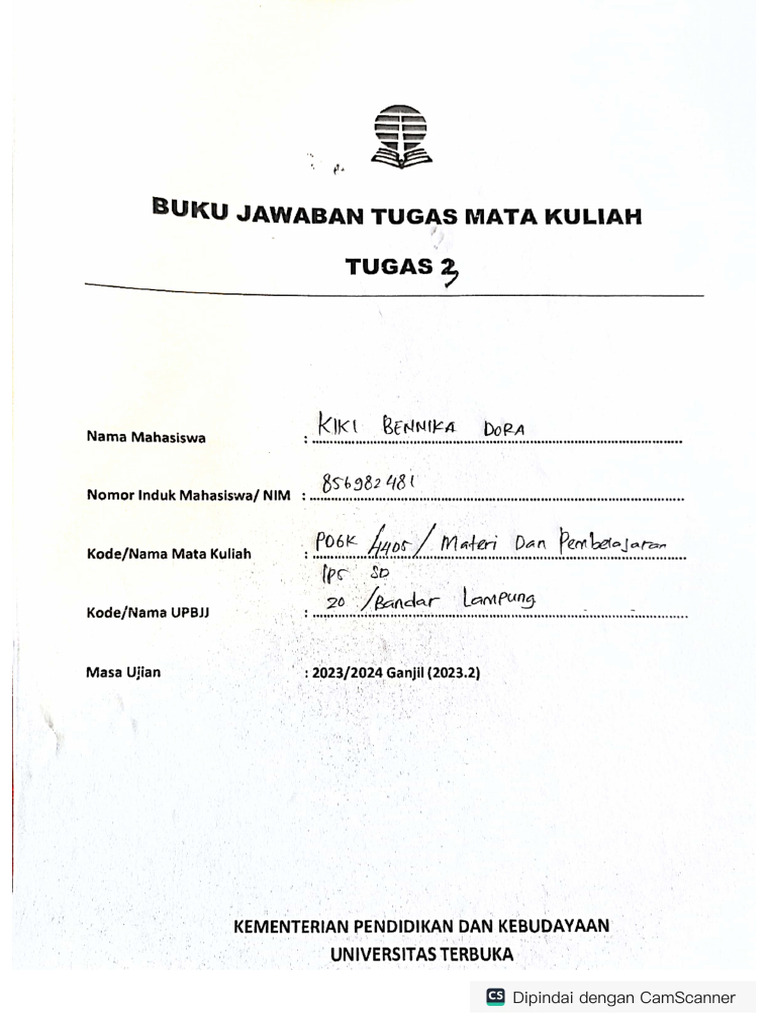 BUKU JAWABAN TUGAS MATA KULIAH
TUGAS 3
Nama Mahasiswa : KIKI BENNIKA DORA
Nomor Induk Mahasiswa/ NIM : 856982481
Kode/Nama Mata Kuliah : PD6K /4405/ Materi Dan Pembelajaran
IPS SD
Kode/Nama UPBJJ : 20 /Bandar Lampung
Masa Ujian : 2023/2024 Ganjil (2023.2)
KEMENTERIAN PENDIDIKAN DAN KEBUDAYAAN
UNIVERSITAS TERBUKA
CS Dipindai dengan CamScanner